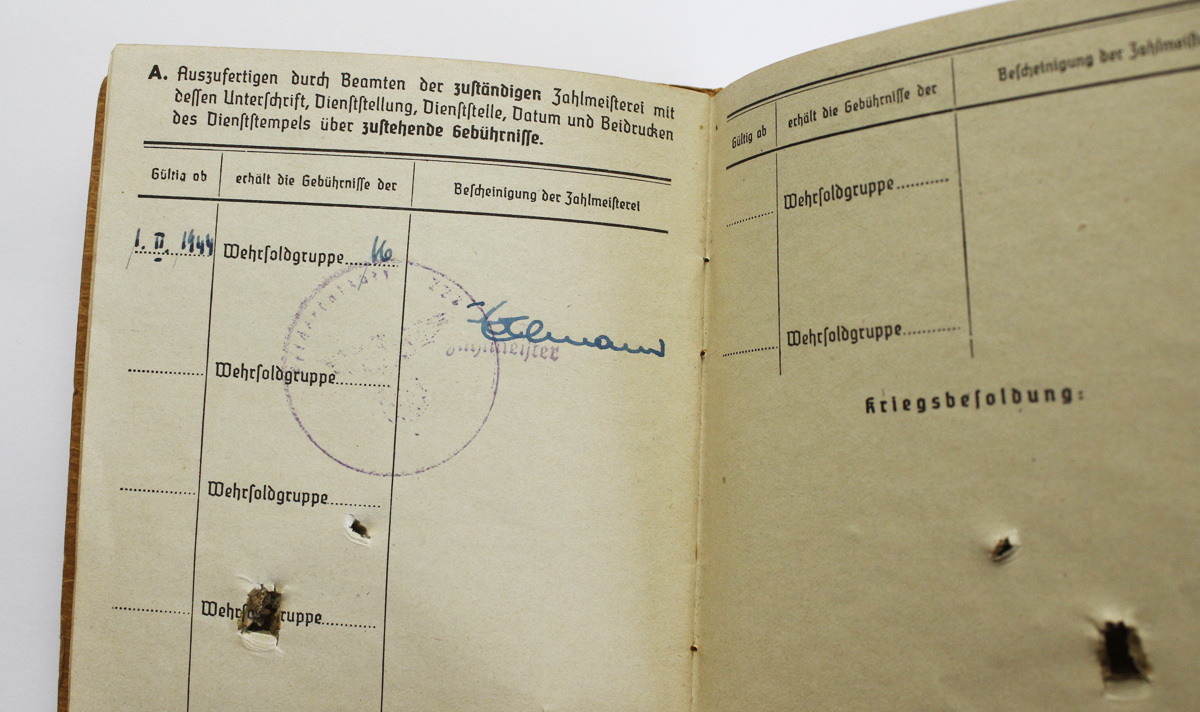 A. Auszufertigen durch Beamten der zuständigen Zahlmeisterei mit
dessen Unterschrift, Dienststellung, Dienststelle, Datum und Beidrucken
des Dienststempels über zustehende Gebührnisse.
Gültig ab erhält die Gebührnisse der Bescheinigung der Zahlmeisterei
1. II. 1944 Wehrsoldgruppe 16
Zahlmeister
Wehrsoldgruppe
Wehrsoldgruppe
Wehrsoldgruppe
Gültig ab erhält die Gebührnisse der Bescheinigung der
Wehrsoldgruppe
Wehrsoldgruppe
Kriegsbesoldung: